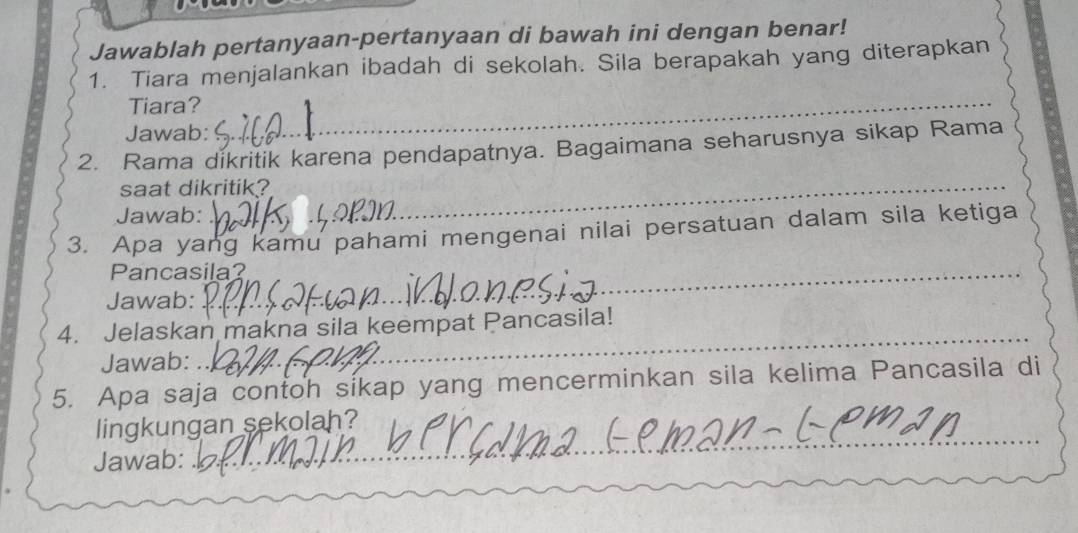 Jawablah pertanyaan-pertanyaan di bawah ini dengan benar!
1. Tiara menjalankan ibadah di sekolah. Sila berapakah yang diterapkan
Tiara?
Jawab: sila 1
2. Rama dikritik karena pendapatnya. Bagaimana seharusnya sikap Rama
saat dikritik?
Jawab: baik, sopan
3. Apa yang kamu pahami mengenai nilai persatuan dalam sila ketiga
Pancasila?
Jawab: pensatuan indonesia
4. Jelaskan makna sila keempat Pancasila!
Jawab: banteng
5. Apa saja contoh sikap yang mencerminkan sila kelima Pancasila di
lingkungan sekolah?
Jawab: bermain bersama teman-teman